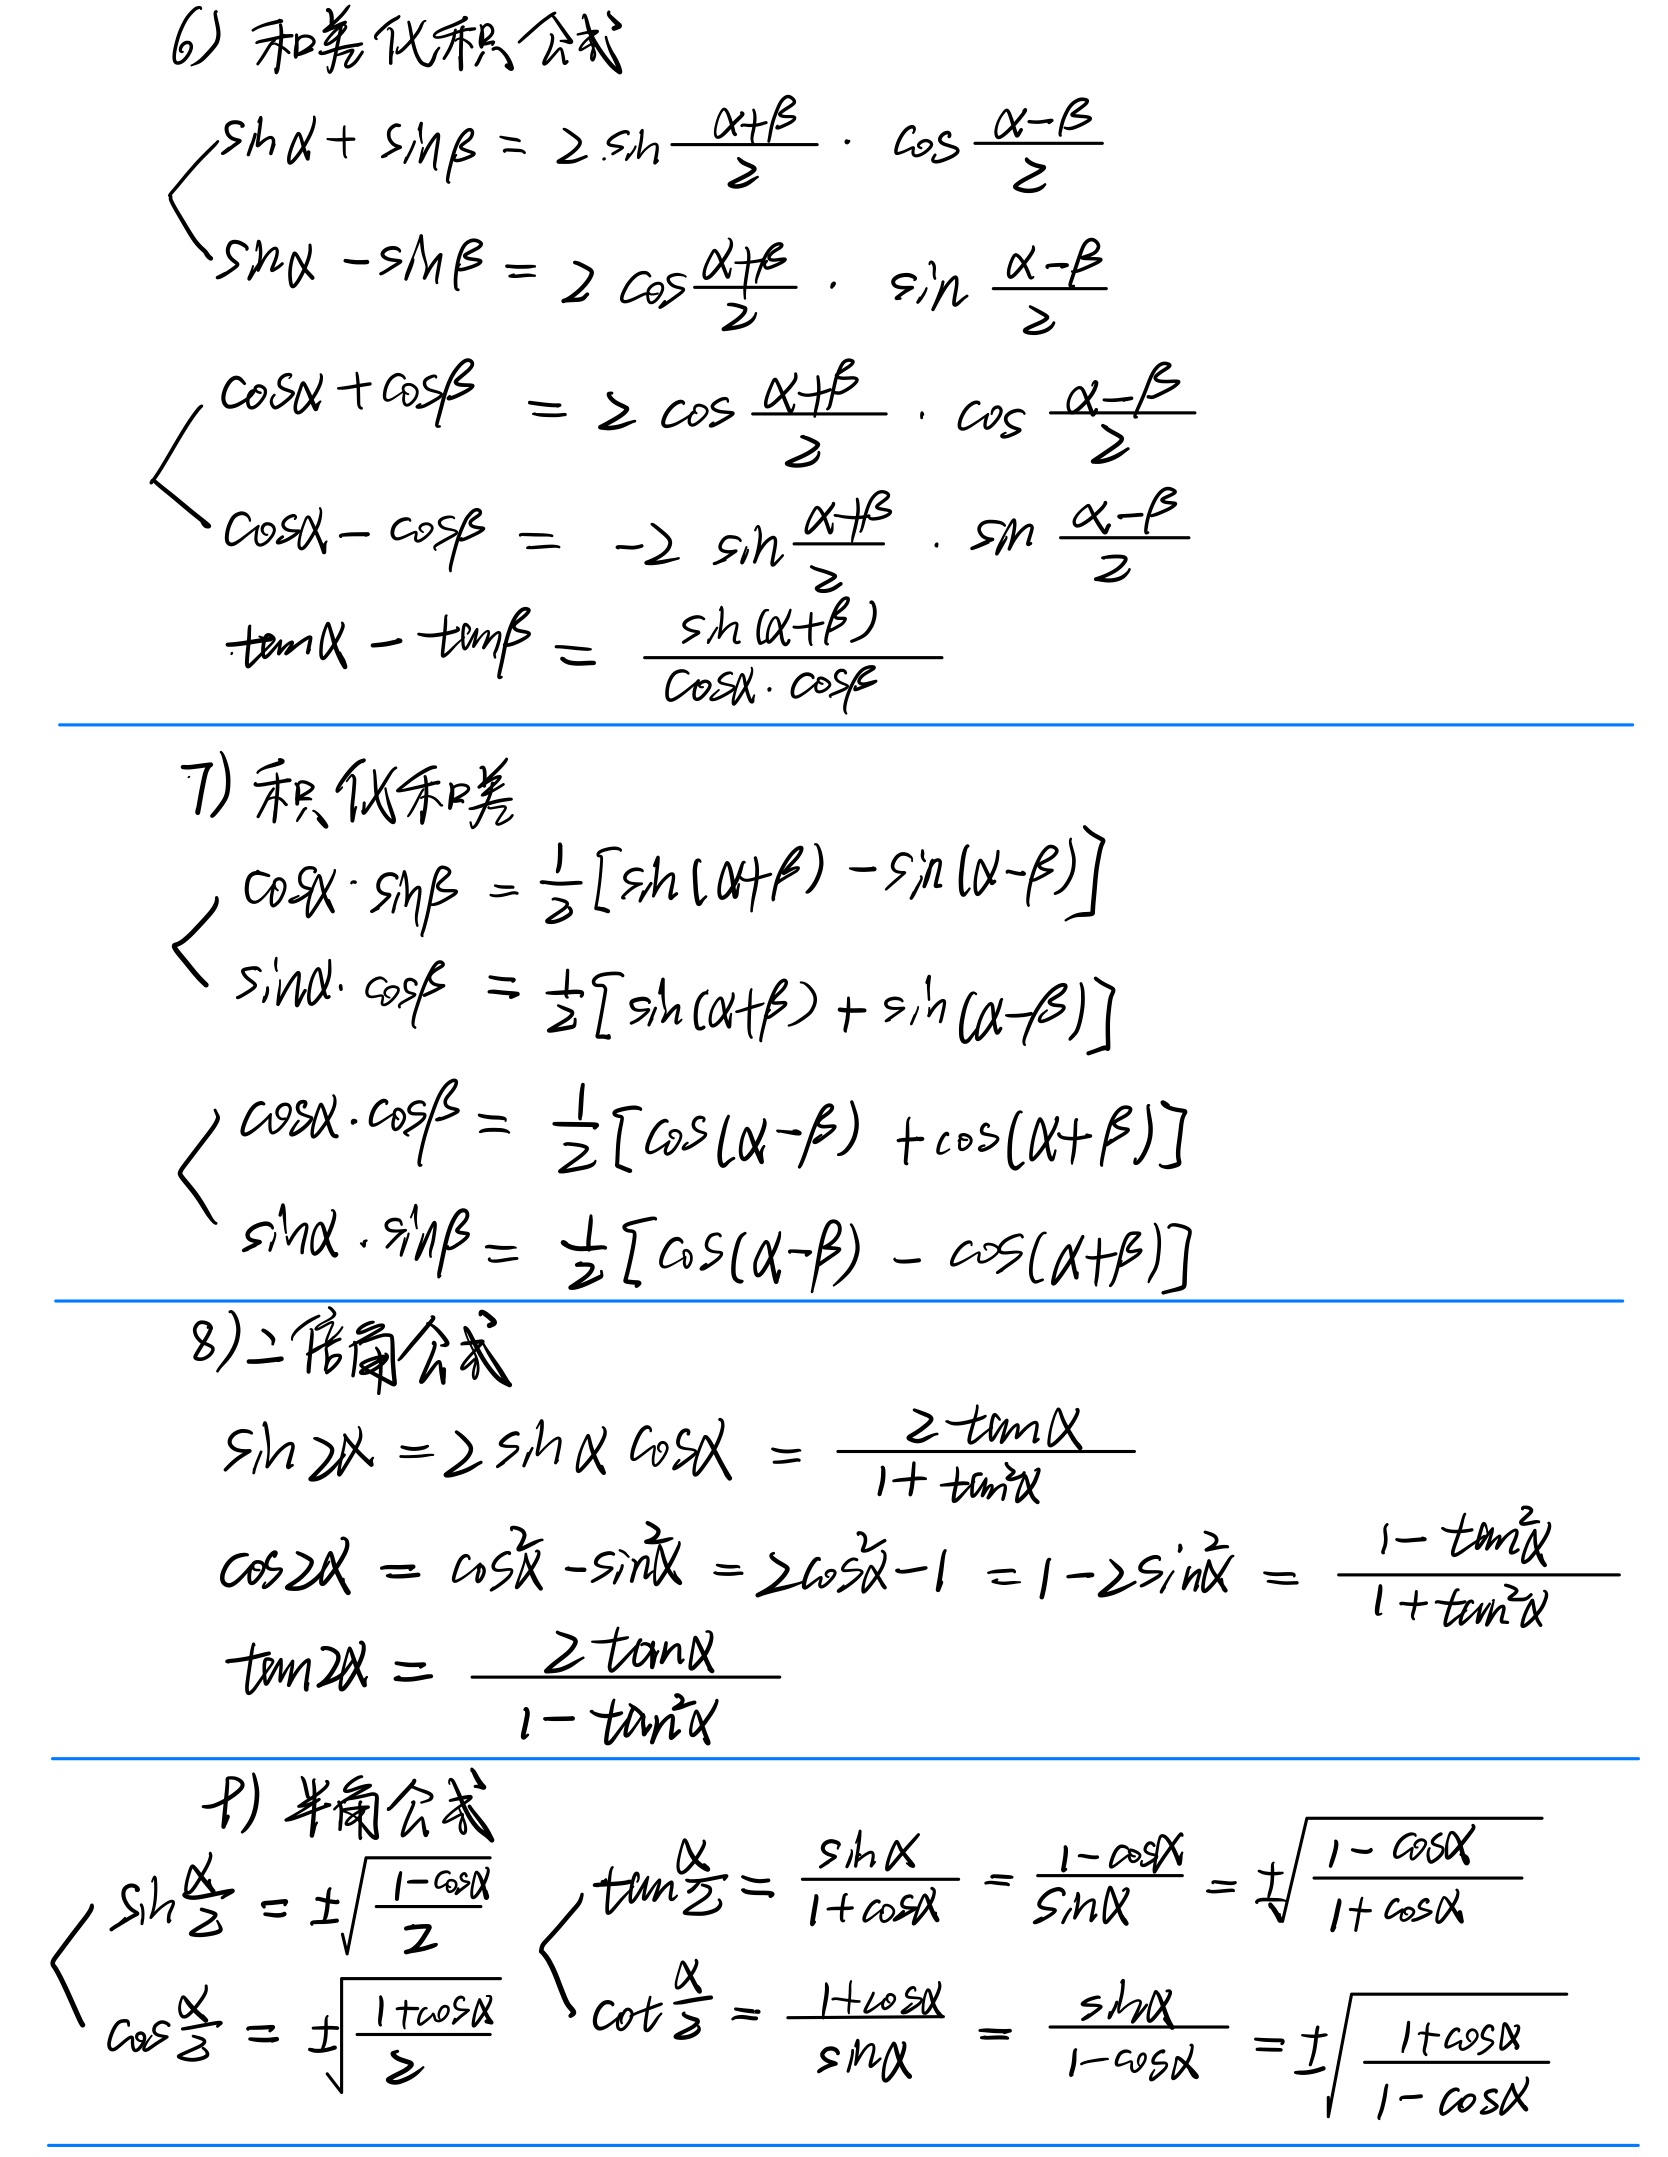 6) 和差化积公式
sinα + sinβ = 2 sin (α+β)/2 · cos (α-β)/2
sinα - sinβ = 2 cos (α+β)/2 · sin (α-β)/2
cosα + cosβ = 2 cos (α+β)/2 · cos (α-β)/2
cosα - cosβ = -2 sin (α+β)/2 · sin (α-β)/2
tanα - tanβ = sin(α+β)/(cosα · cosβ)
7) 积化和差
cosα · sinβ = 1/2 [sin(α+β) - sin(α-β)]
sinα · cosβ = 1/2 [sin(α+β) + sin(α-β)]
cosα · cosβ = 1/2 [cos(α-β) + cos(α+β)]
sinα · sinβ = 1/2 [cos(α-β) - cos(α+β)]
8) 二倍角公式
sin2α = 2 sinα cosα = 2tanα/(1+tan²α)
cos2α = cos²α - sin²α = 2cos²α - 1 = 1 - 2sin²α = (1-tan²α)/(1+tan²α)
tan2α = 2tanα/(1-tan²α)
9) 半角公式
sin α/2 = ±√((1-cosα)/2)
cos α/2 = ±√((1+cosα)/2)
tan α/2 = sinα/(1+cosα) = (1-cosα)/sinα = ±√((1-cosα)/(1+cosα))
cot α/2 = (1+cosα)/sinα = sinα/(1-cosα) = ±√((1+cosα)/(1-cosα))